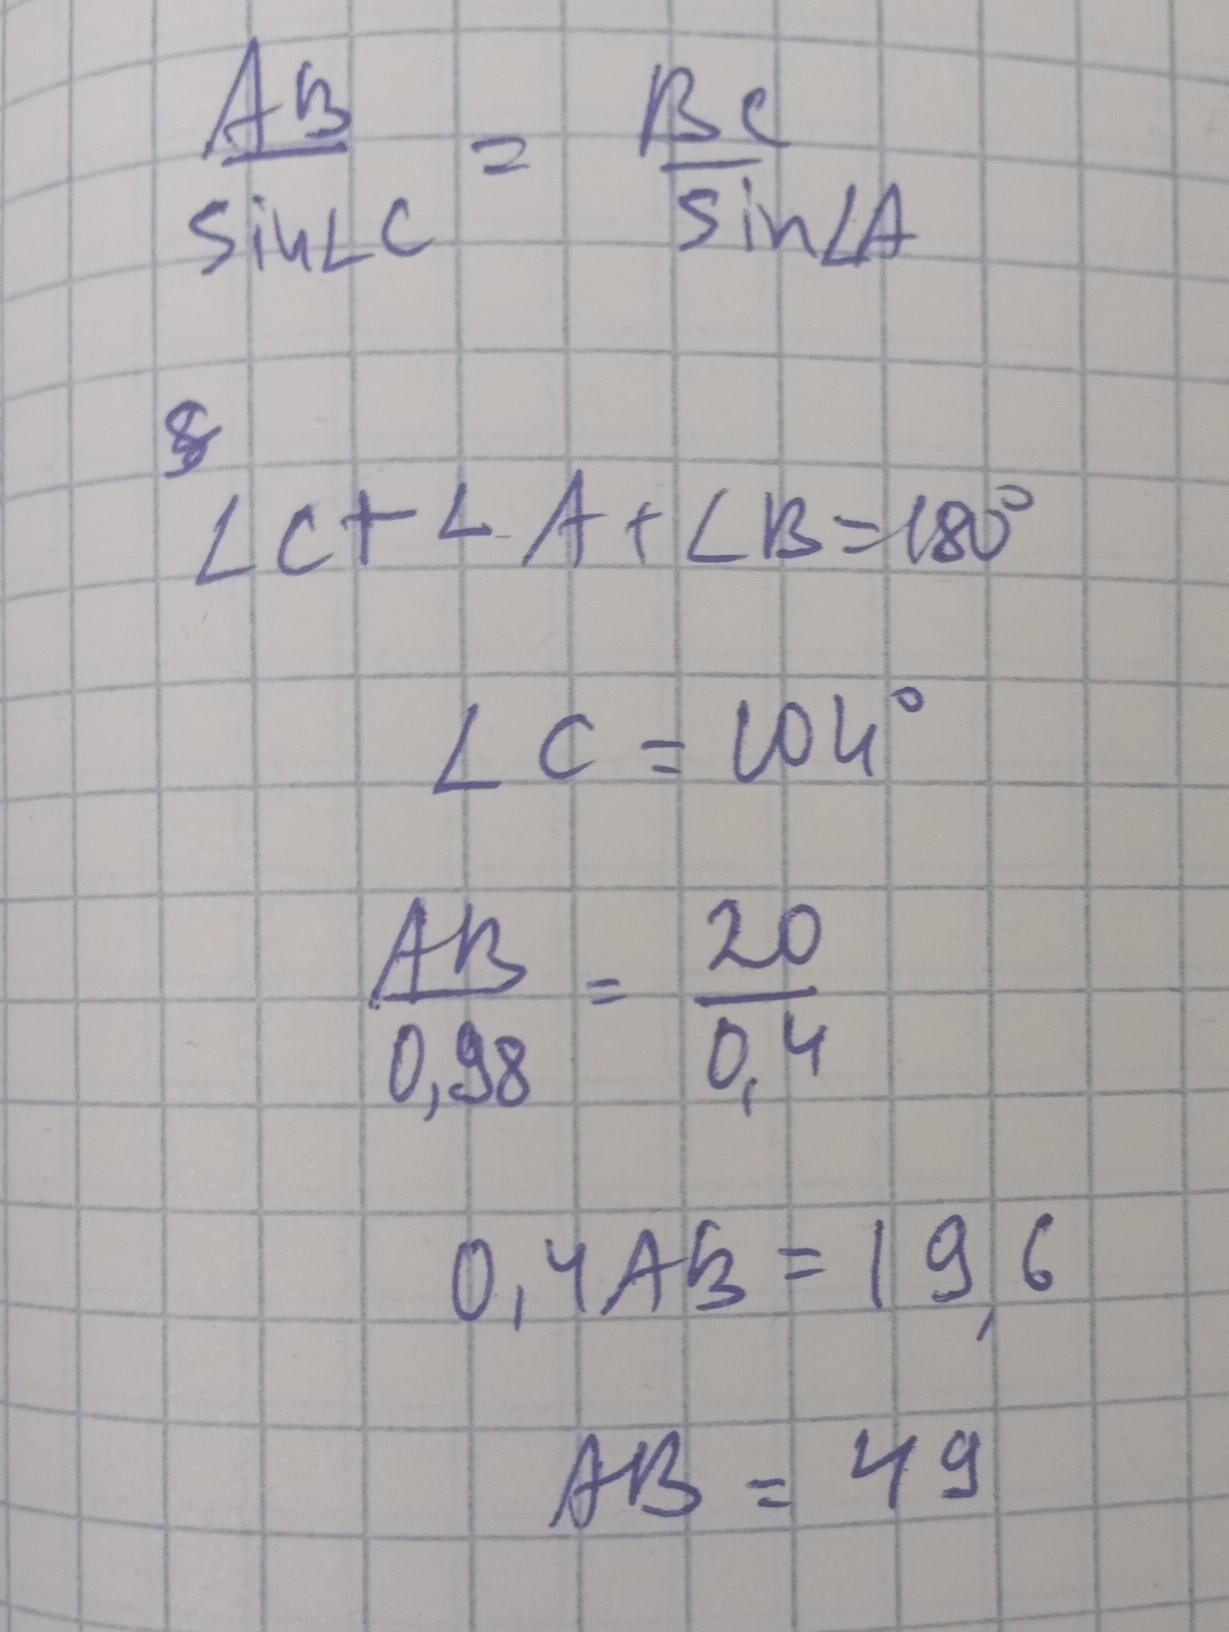 AB/sin∠C = BC/sin∠A
∠C+∠A+∠B=180°
∠C = 104°
AB/0,98 = 20/0,4
0,4AB = 19,6
AB = 49